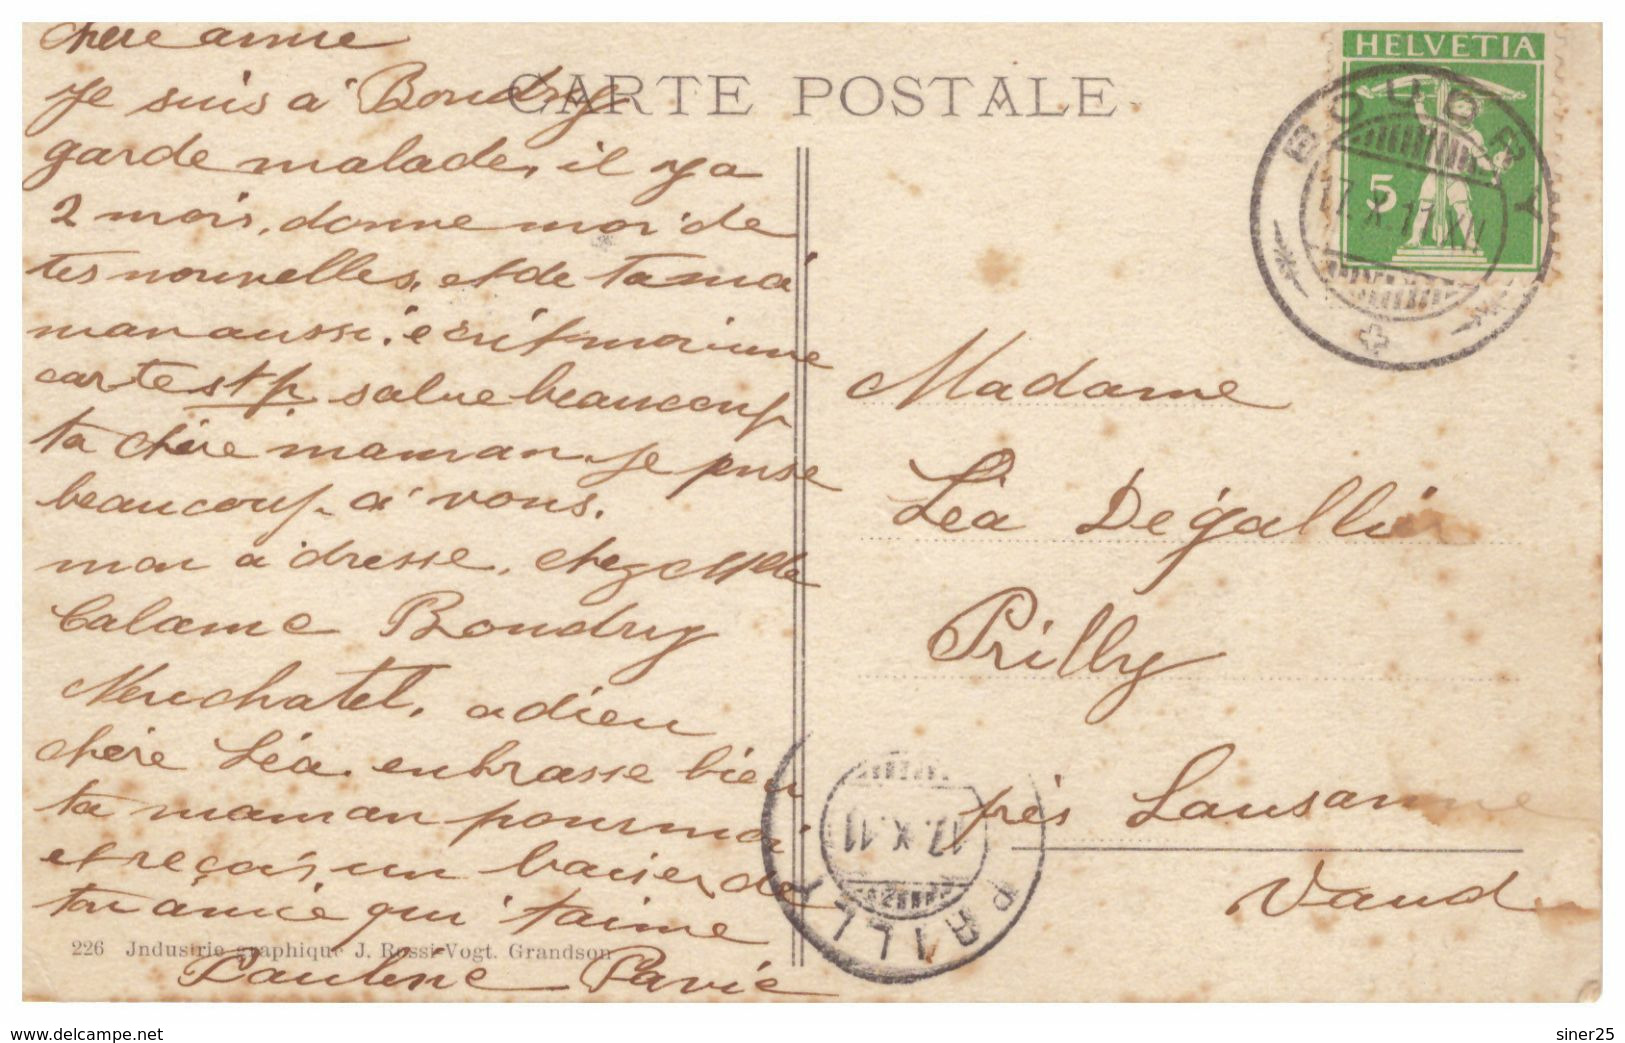 chère amie
je suis à Boudry
garde malade, il y a
2 mois, donne moi de
tes nouvelles, et de ta ma
man aussi, écrit moi une
carte stp. salue beaucoup
ta chère maman. je pense
beaucoup à vous.
mon adresse, chez Mlle
Calame Boudry
Neuchatel. adieu
chère Léa. enbrasse bien
ta maman pour moi
et reçois un baiser de
ton amie qui t'aime
Pauline Pavie
CARTE POSTALE
HELVETIA
5
BOUDRY
17.X.11.XII
Madame
Léa Dégallier
Prilly
près Lausanne
Vaud
PRILLY
17.X.11
226 Jndustrie graphique J. Rossi-Vogt. Grandson
www.delcampe.net
siner25